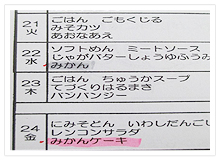 21 火
ごはん ごもくじる
みそカツ
あおなあえ
22 水
ソフトめん ミートソース
じゃがバターしょうゆふうみ
みかん
23 木
ごはん ちゅうかスープ
てづくりはるまき
バンバンジー
24 金
にみそどん いわしだんご
レンコンサラダ
みかんケーキ